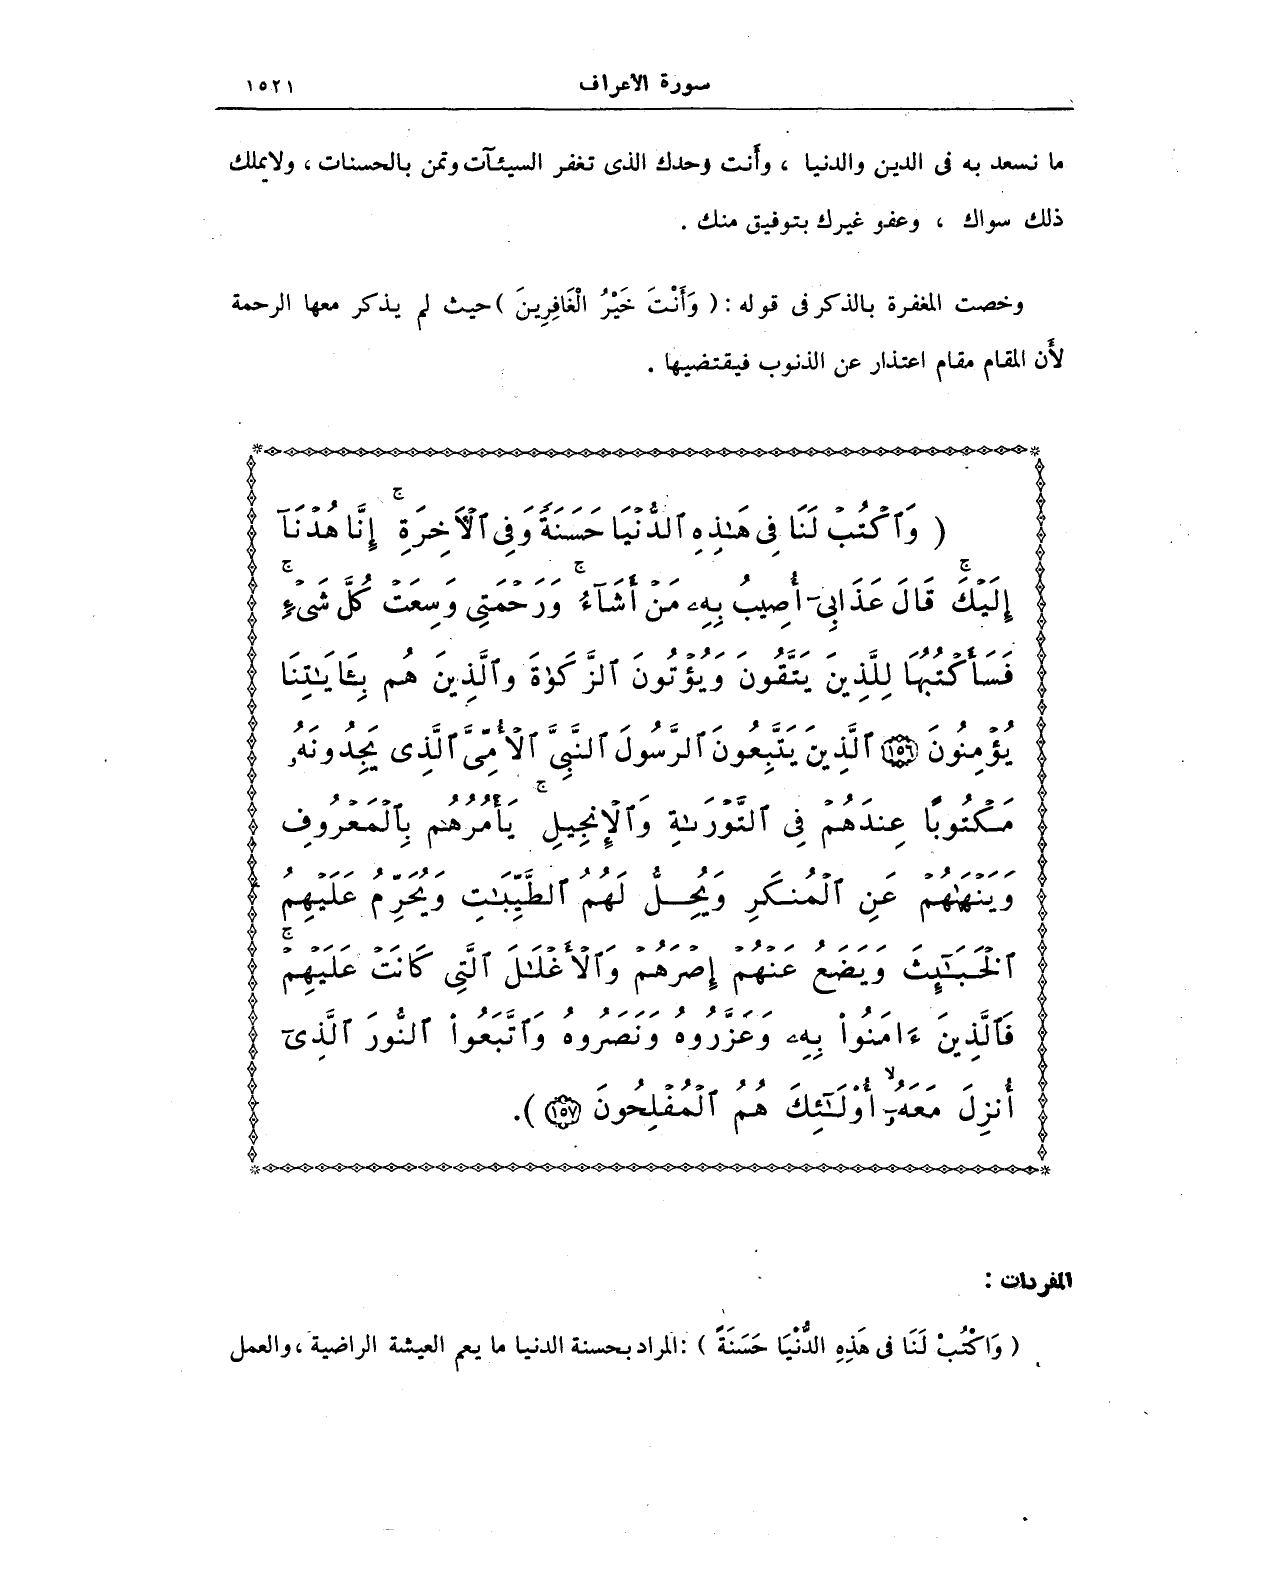 سورة الاعراف ١٥٢١
ما نسعد به فى الدين والدنيا ، وأَنت وحدك الذى تغفر السيئآت وتمن بالحسنات ، ولايملك
ذلك سواك ، وعفو غيرك بتوفيق منك .
وخصت المغفرة بالذكر فى قوله : ( وَأَنْتَ خَيْرُ الْغَافِرِينَ ) حيث لم يذكر معها الرحمة
لأَن المقام مقام اعتذار عن الذنوب فيقتضيها .
( وَٱكْتُبْ لَنَا فِى هَـٰذِهِ ٱلدُّنْيَا حَسَنَةً وَفِى ٱلْأَخِرَةِ ۚ إِنَّا هُدْنَآ
إِلَيْكَ ۚ قَالَ عَذَابِىٓ أُصِيبُ بِهِۦ مَنْ أَشَآءُ ۚ وَرَحْمَتِى وَسِعَتْ كُلَّ شَىْءٍ ۚ
فَسَأَكْتُبُهَا لِلَّذِينَ يَتَّقُونَ وَيُؤْتُونَ ٱلزَّكَوٰةَ وَٱلَّذِينَ هُم بِـَٔايَـٰتِنَا
يُؤْمِنُونَ ١٥٦ ٱلَّذِينَ يَتَّبِعُونَ ٱلرَّسُولَ ٱلنَّبِىَّ ٱلْأُمِّىَّ ٱلَّذِى يَجِدُونَهُۥ
مَكْتُوبًا عِندَهُمْ فِى ٱلتَّوْرَىٰةِ وَٱلْإِنجِيلِ ۚ يَأْمُرُهُم بِٱلْمَعْرُوفِ
وَيَنْهَىٰهُمْ عَنِ ٱلْمُنكَرِ وَيُحِلُّ لَهُمُ ٱلطَّيِّبَـٰتِ وَيُحَرِّمُ عَلَيْهِمُ
ٱلْخَبَـٰٓئِثَ وَيَضَعُ عَنْهُمْ إِصْرَهُمْ وَٱلْأَغْلَـٰلَ ٱلَّتِى كَانَتْ عَلَيْهِمْ ۚ
فَٱلَّذِينَ ءَامَنُوا۟ بِهِۦ وَعَزَّرُوهُ وَنَصَرُوهُ وَٱتَّبَعُوا۟ ٱلنُّورَ ٱلَّذِىٓ
أُنزِلَ مَعَهُۥٓ ۙ أُو۟لَـٰٓئِكَ هُمُ ٱلْمُفْلِحُونَ ١٥٧ ).
المفردات :
( وَاكْتُبْ لَنَا فى هَذِهِ الدُّنْيَا حَسَنَةً ) : المراد بحسنة الدنيا ما يعم العيشة الراضية ، والعمل